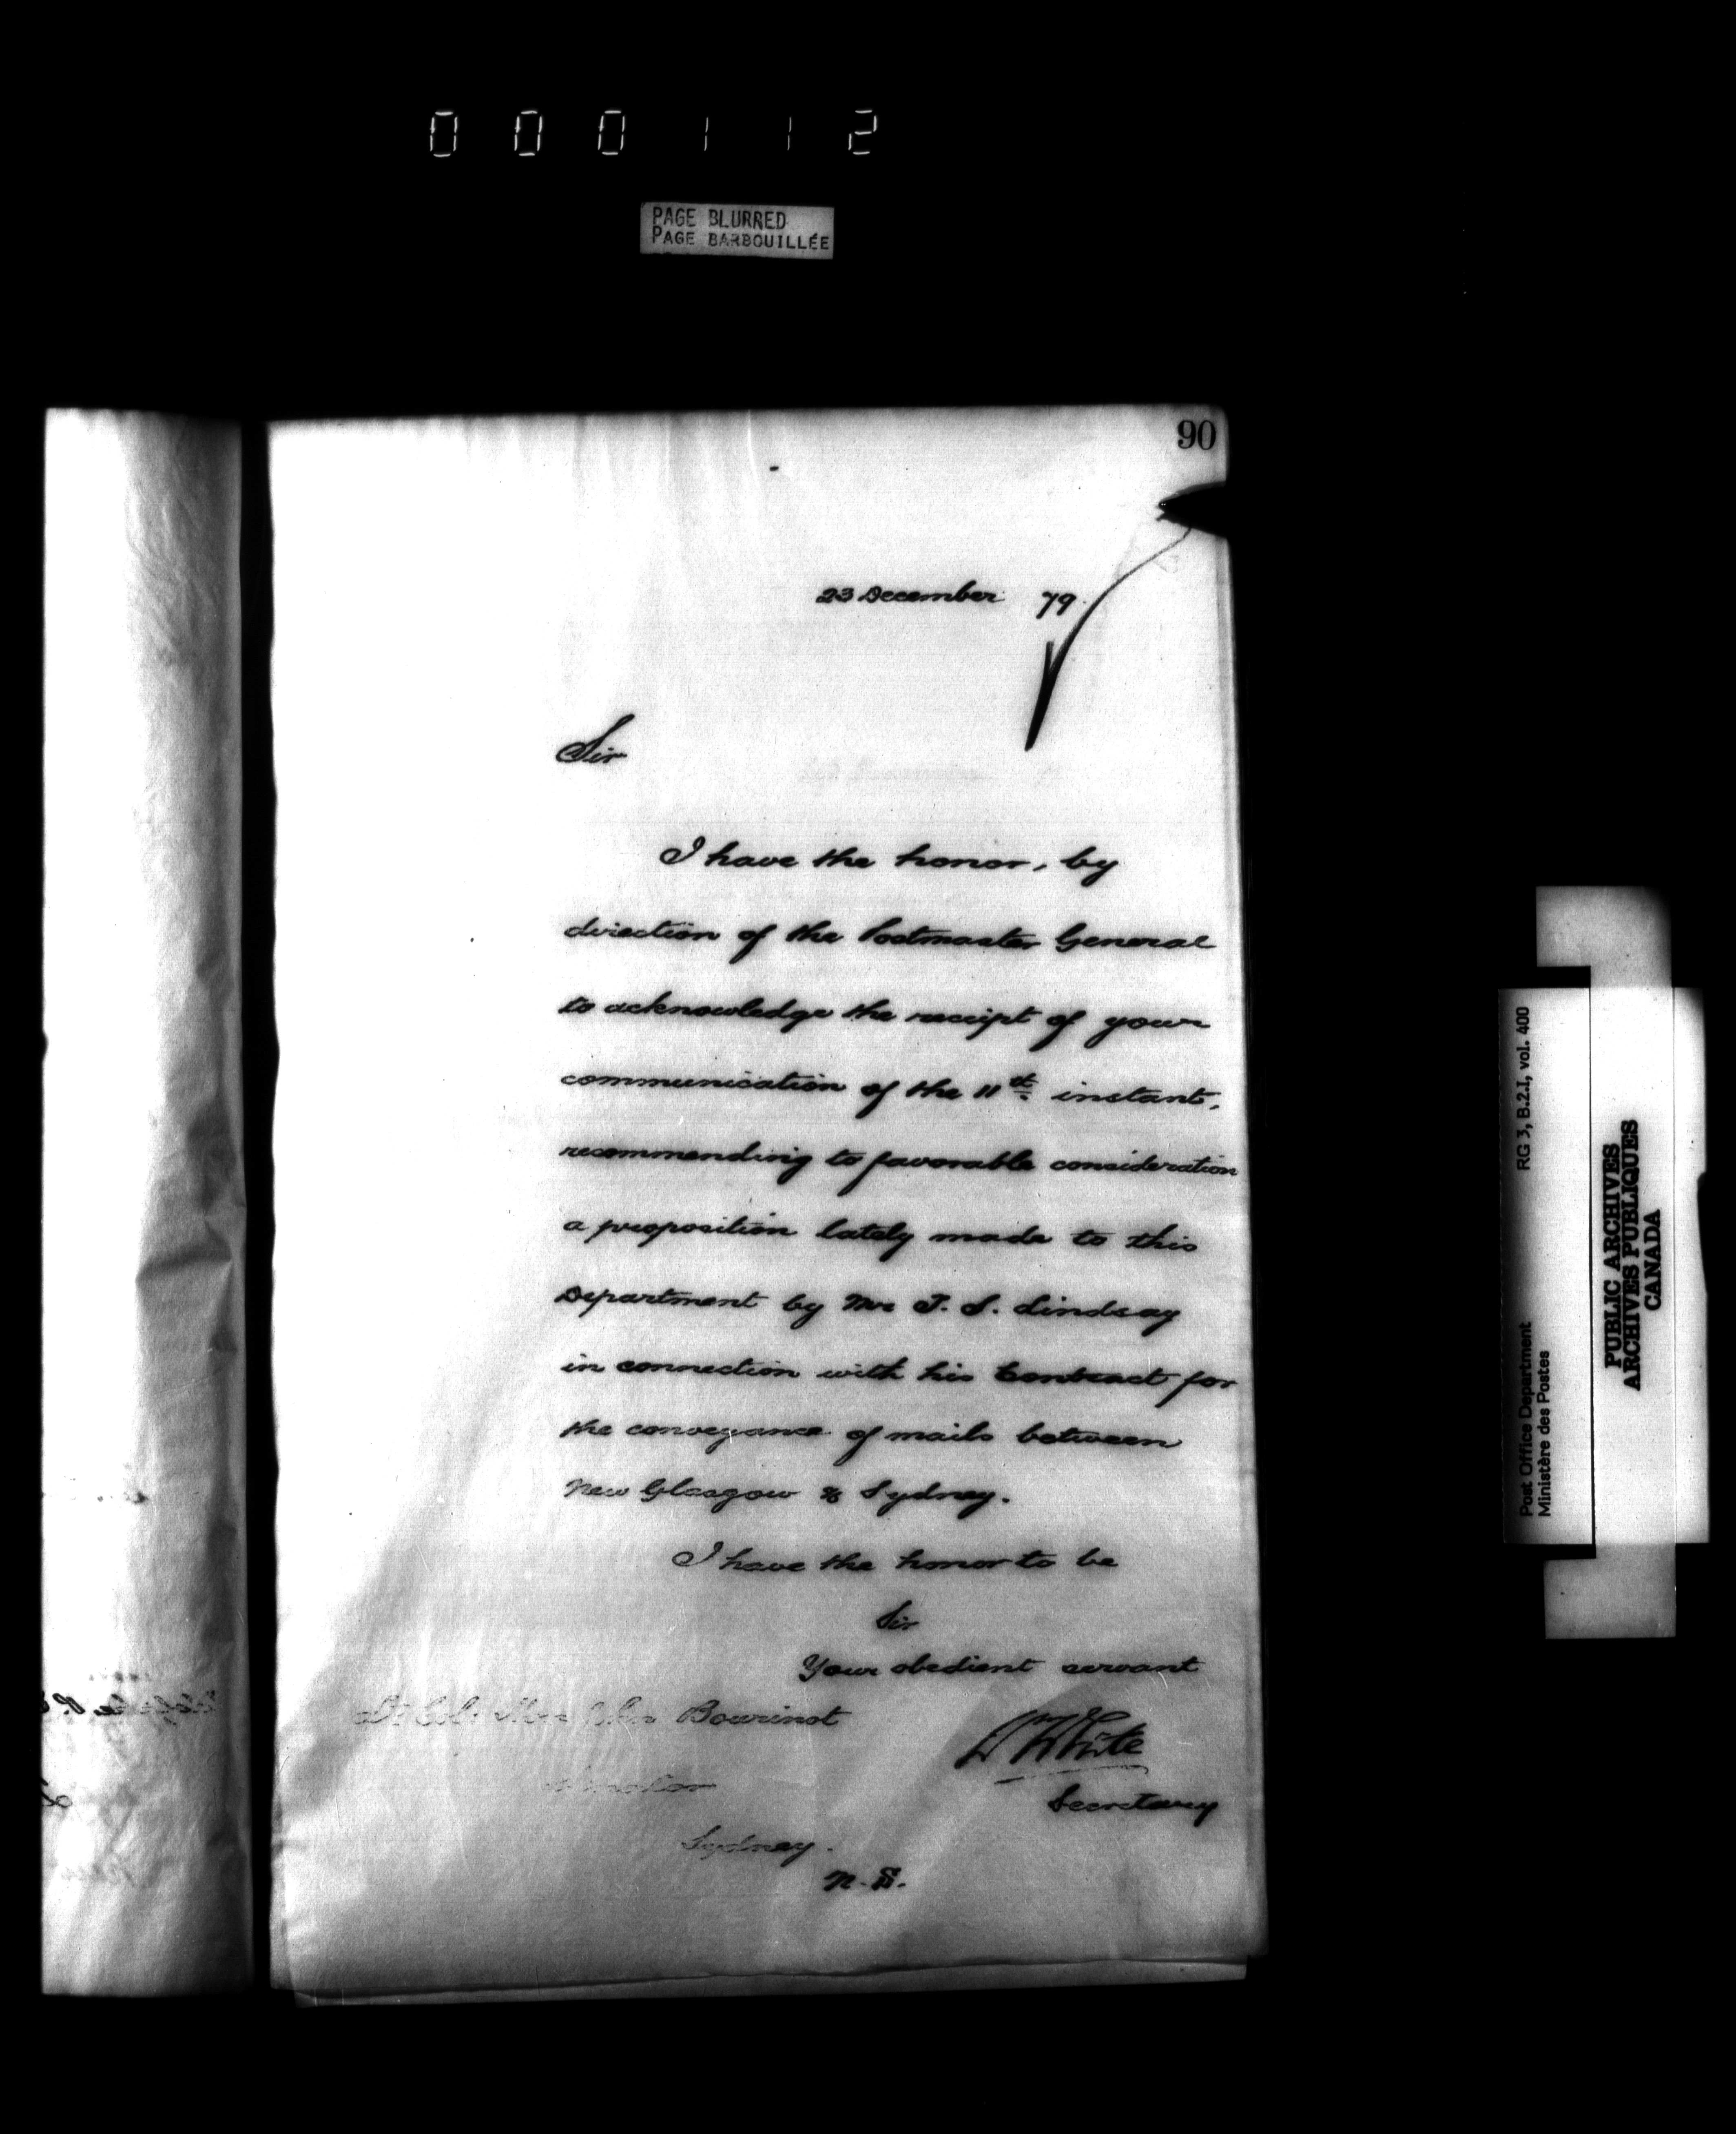 000112
PAGE BLURRED
PAGE BARBOUILLÉE
90
23 December 79
Sir
I have the honor, by
direction of the Postmaster General
to acknowledge the receipt of your
communication of the 11th instant,
recommending to favorable consideration
a proposition lately made to this
Department by Mr
in connection with his Contract for
the conveyance of mails between
New Glasgow & Sydney.
I have the honor to be
Sir
Your obedient servant
Lt Col. Hon John Bourinot
W White
Senator
Secretary
Sydney.
N.S.
Post Office Department RG 3, B.2.I, vol. 400
Ministère des Postes
PUBLIC ARCHIVES
ARCHIVES PUBLIQUES
CANADA